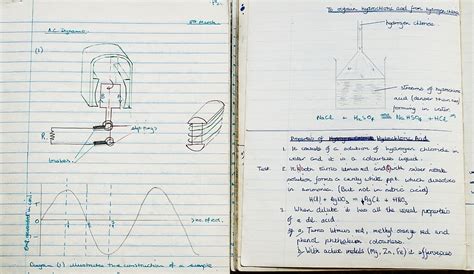 8th March
A.C. Dynamo
(1)
slip rings
R
brushes
no. of rot.
Diagram (1) illustrates the construction of a simple
To prepare hydrochloric acid from hydrogen chloride
hydrogen chloride
streams of hydrochloric
acid (denser than water)
forming in water
NaCl + H2SO4 NaHSO4 + HCl
Properties of Hydrochloric Acid
1. It consists of a solution of hydrogen chloride in
water and it is a colourless liquid.
Test: turns litmus red and with silver nitrate
solution, forms a curdy white ppt. which dissolves
in ammonia. (But not in nitric acid)
HCl + AgNO3 = AgCl + HNO3
2. When dilute it has all the usual properties
of a dil. acid.
a) Turns litmus red, methyl orange red and
phenol phthalein colourless.
b) With active metals (Mg, Zn, Fe) it effervesces